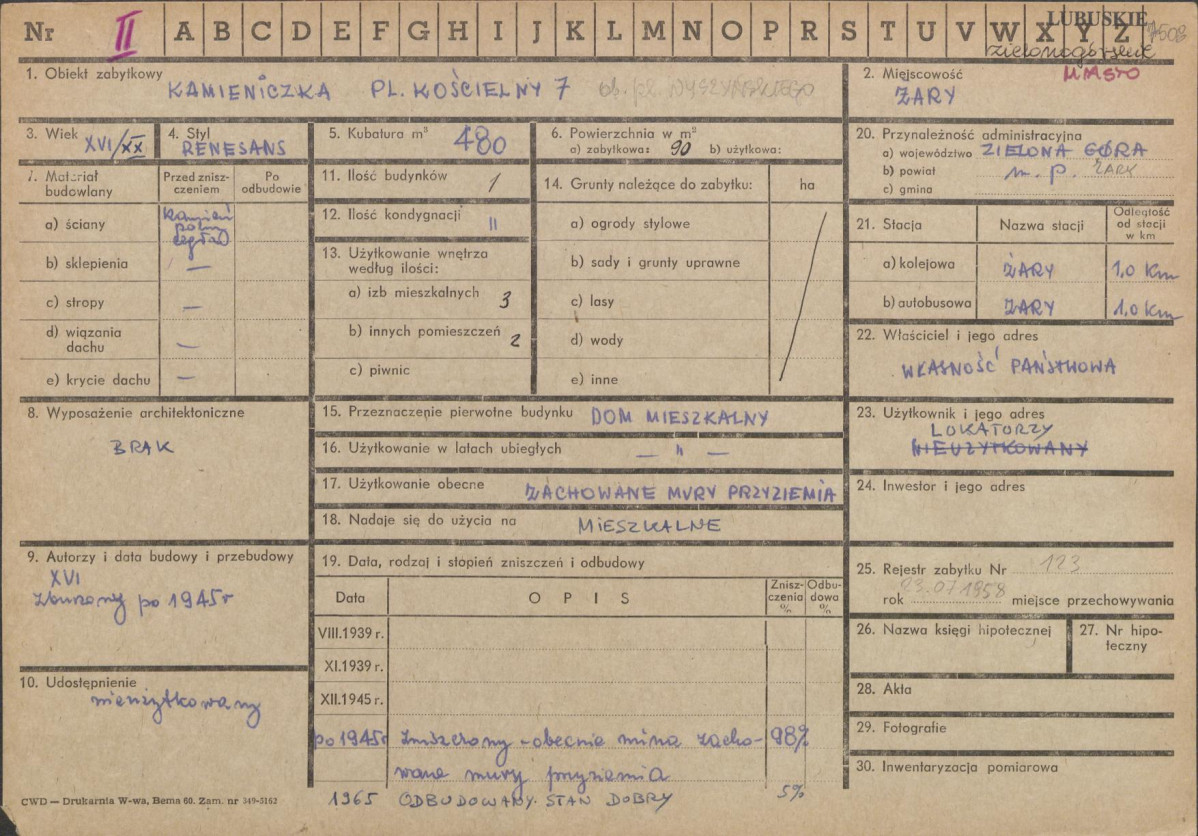 Nr II A B C D E F G H I J K L M N O P R S T U V W X Y Z
LUBUSKIE
zielonogórskie
1. Obiekt zabytkowy
KAMIENICZKA PL. KOŚCIELNY 7 ob. pl. WYSZYŃSKIEGO
2. Miejscowość MIASTO
ŻARY
3. Wiek
XVI/XX
4. Styl
RENESANS
5. Kubatura m³ 480
6. Powierzchnia w m²
a) zabytkowa: 90 b) użytkowa:
7. Materiał budowlany
Przed znisz-
czeniem
Po
odbudowie
a) ściany
kamień
polny
cegła
b) sklepienia —
c) stropy —
d) wiązania
dachu —
e) krycie dachu —
8. Wyposażenie architektoniczne
BRAK
9. Autorzy i data budowy i przebudowy
XVI
Zburzony po 1945r
10. Udostępnienie
nieużytkowany
11. Ilość budynków 1
12. Ilość kondygnacji II
13. Użytkowanie wnętrza
według ilości:
a) izb mieszkalnych 3
b) innych pomieszczeń 2
c) piwnic
14. Grunty należące do zabytku: ha
a) ogrody stylowe
b) sady i grunty uprawne
c) lasy
d) wody
e) inne
15. Przeznaczenie pierwotne budynku DOM MIESZKALNY
16. Użytkowanie w latach ubiegłych — " —
17. Użytkowanie obecne ZACHOWANE MURY PRZYZIEMIA
18. Nadaje się do użycia na MIESZKALNE
19. Data, rodzaj i stopień zniszczeń i odbudowy
Data
O P I S
Znisz-
czenia
%
Odbu-
dowa
%
VIII.1939 r.
XI.1939 r.
XII.1945 r.
po 1945r Zniszczony - obecnie ruina zacho- 98%
wane mury przyziemia
1965 ODBUDOWANY. STAN DOBRY 5%
20. Przynależność administracyjna
a) województwo ZIELONA GÓRA
b) powiat m. p. ŻARY
c) gmina
21. Stacja
Nazwa stacji
Odległość
od stacji
w km
a) kolejowa ŻARY 1,0 Km
b) autobusowa ŻARY 1,0 Km
22. Właściciel i jego adres
WŁASNOŚĆ PAŃSTWOWA
23. Użytkownik i jego adres
LOKATORZY
NIEUŻYTKOWANY
24. Inwestor i jego adres
25. Rejestr zabytku Nr 123
rok 23.07.1958 miejsce przechowywania
26. Nazwa księgi hipotecznej
27. Nr hipo-
teczny
28. Akta
29. Fotografie
30. Inwentaryzacja pomiarowa
CWD — Drukarnia W-wa, Bema 60. Zam. nr 349-5162